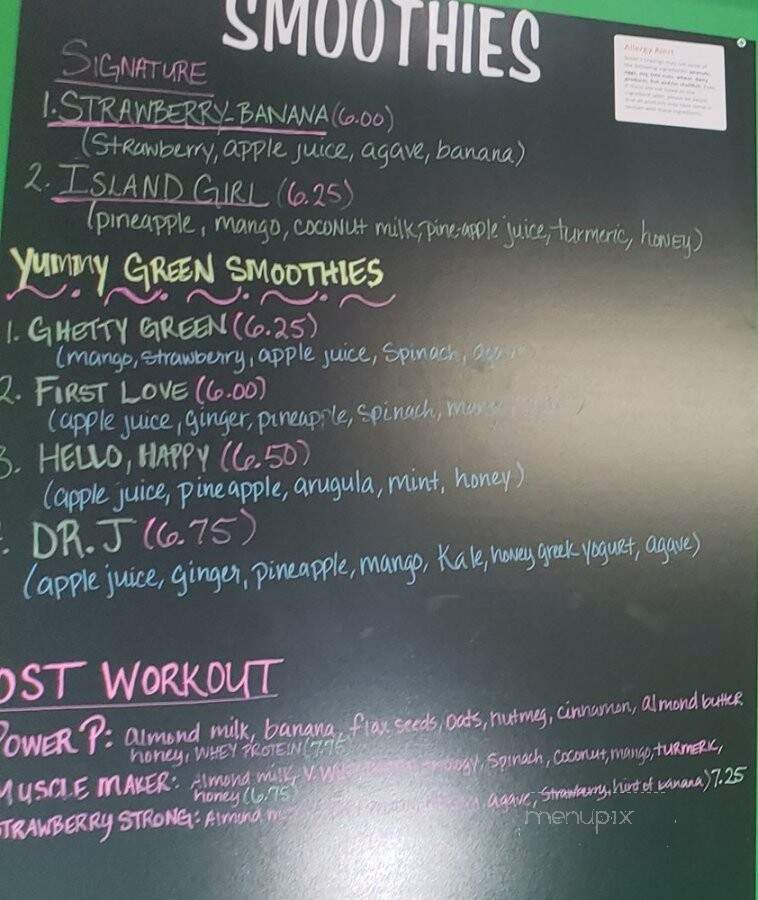 SMOOTHIES
Allergy Alert
SIGNATURE
1. STRAWBERRY-BANANA (6.00)
(Strawberry, apple juice, agave, banana)
2. ISLAND GIRL (6.25)
(pineapple, mango, coconut milk, pine-apple juice, turmeric, honey)
Yummy GREEN SMOOTHIES
1. GHETTY GREEN (6.25)
(mango, strawberry, apple juice, Spinach,
2. FIRST LOVE (6.00)
(apple juice, ginger, pineapple, Spinach,
3. HELLO, HAPPY (6.50)
(apple juice, pineapple, arugula, mint, honey)
DR. J (6.75)
(apple juice, ginger, pineapple, mango, Kale, honey greek yogurt, agave)
OST WORKOUT
POWER P: almond milk, banana, flax seeds, oats, nutmeg, cinnamon, almond butter
honey, WHEY PROTEIN (7.75
MUSCLE MAKER: Almond milk, Spinach, Coconut, mango, TURMERIC,
honey (6.75)
TRAWBERRY STRONG: Almond agave, Strawberry, hint of banana) 7.25
menupix